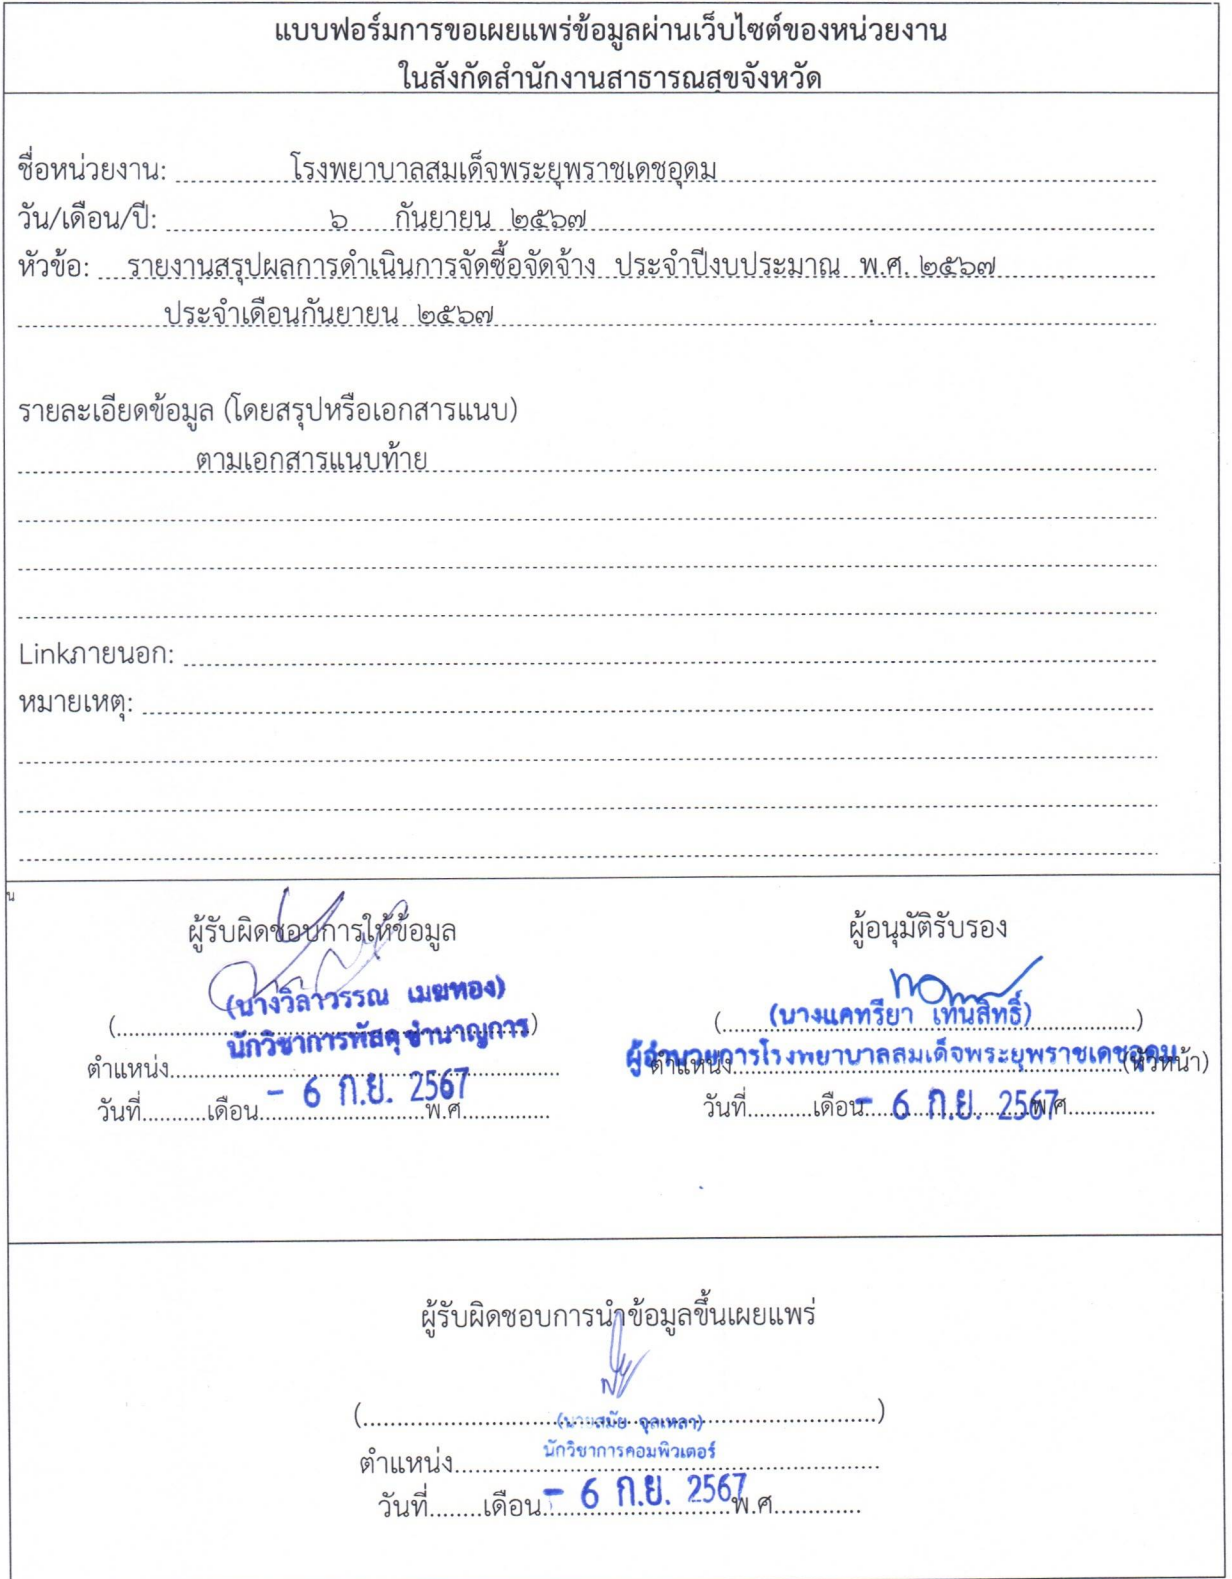 แบบฟอร์มการขอเผยแพร่ข้อมูลผ่านเว็บไซต์ของหน่วยงาน
ในสังกัดสำนักงานสาธารณสุขจังหวัด
ชื่อหน่วยงาน: โรงพยาบาลสมเด็จพระยุพราชเดชอุดม
วัน/เดือน/ปี: ๖ กันยายน ๒๕๖๗
หัวข้อ: รายงานสรุปผลการดำเนินการจัดซื้อจัดจ้าง ประจำปีงบประมาณ พ.ศ. ๒๕๖๗
ประจำเดือนกันยายน ๒๕๖๗
รายละเอียดข้อมูล (โดยสรุปหรือเอกสารแนบ)
ตามเอกสารแนบท้าย
Linkภายนอก:
หมายเหตุ:
น
ผู้รับผิดชอบการให้ข้อมูล
(นางวิลาวรรณ เมฆทอง)
(..........)
นักวิชาการพัสดุชำนาญการ
ตำแหน่ง..........
- 6 ก.ย. 2567
วันที่..........เดือน..........พ.ศ..........
ผู้อนุมัติรับรอง
(นางแคทรียา เทนสิทธิ์)
(..........)
ผู้อำนวยการโรงพยาบาลสมเด็จพระยุพราชเดชอุดม
ตำแหน่ง..........(หัวหน้า)
วันที่..........เดือน..........พ.ศ..........
- 6 ก.ย. 2567
ผู้รับผิดชอบการนำข้อมูลขึ้นเผยแพร่
(..........)
(นายสมัย จุลเหลา)
นักวิชาการคอมพิวเตอร์
ตำแหน่ง..........
วันที่........เดือน..........พ.ศ..........
- 6 ก.ย. 2567